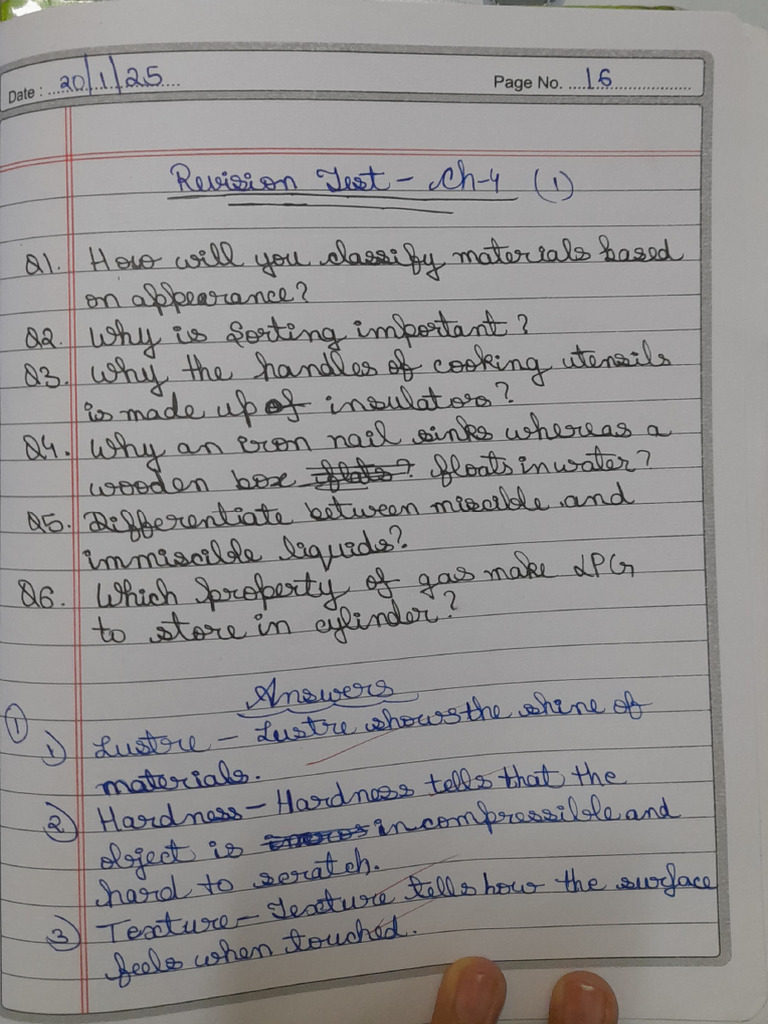 Date : 20/1/25 Page No. 16
Revision Test - Ch-4 (1)
Q1. How will you classify materials based
on appearance?
Q2. Why is sorting important?
Q3. Why the handles of cooking utensils
is made up of insulators?
Q4. Why an iron nail sinks whereas a
wooden box floats in water?
Q5. Differentiate between miscible and
immiscible liquids?
Q6. Which property of gas make LPG
to store in cylinder?
Answers
① 1) Lustre - Lustre shows the shine of
materials.
2) Hardness - Hardness tells that the
object is incompressible and
hard to scratch.
3) Texture - Texture tells how the surface
feels when touched.